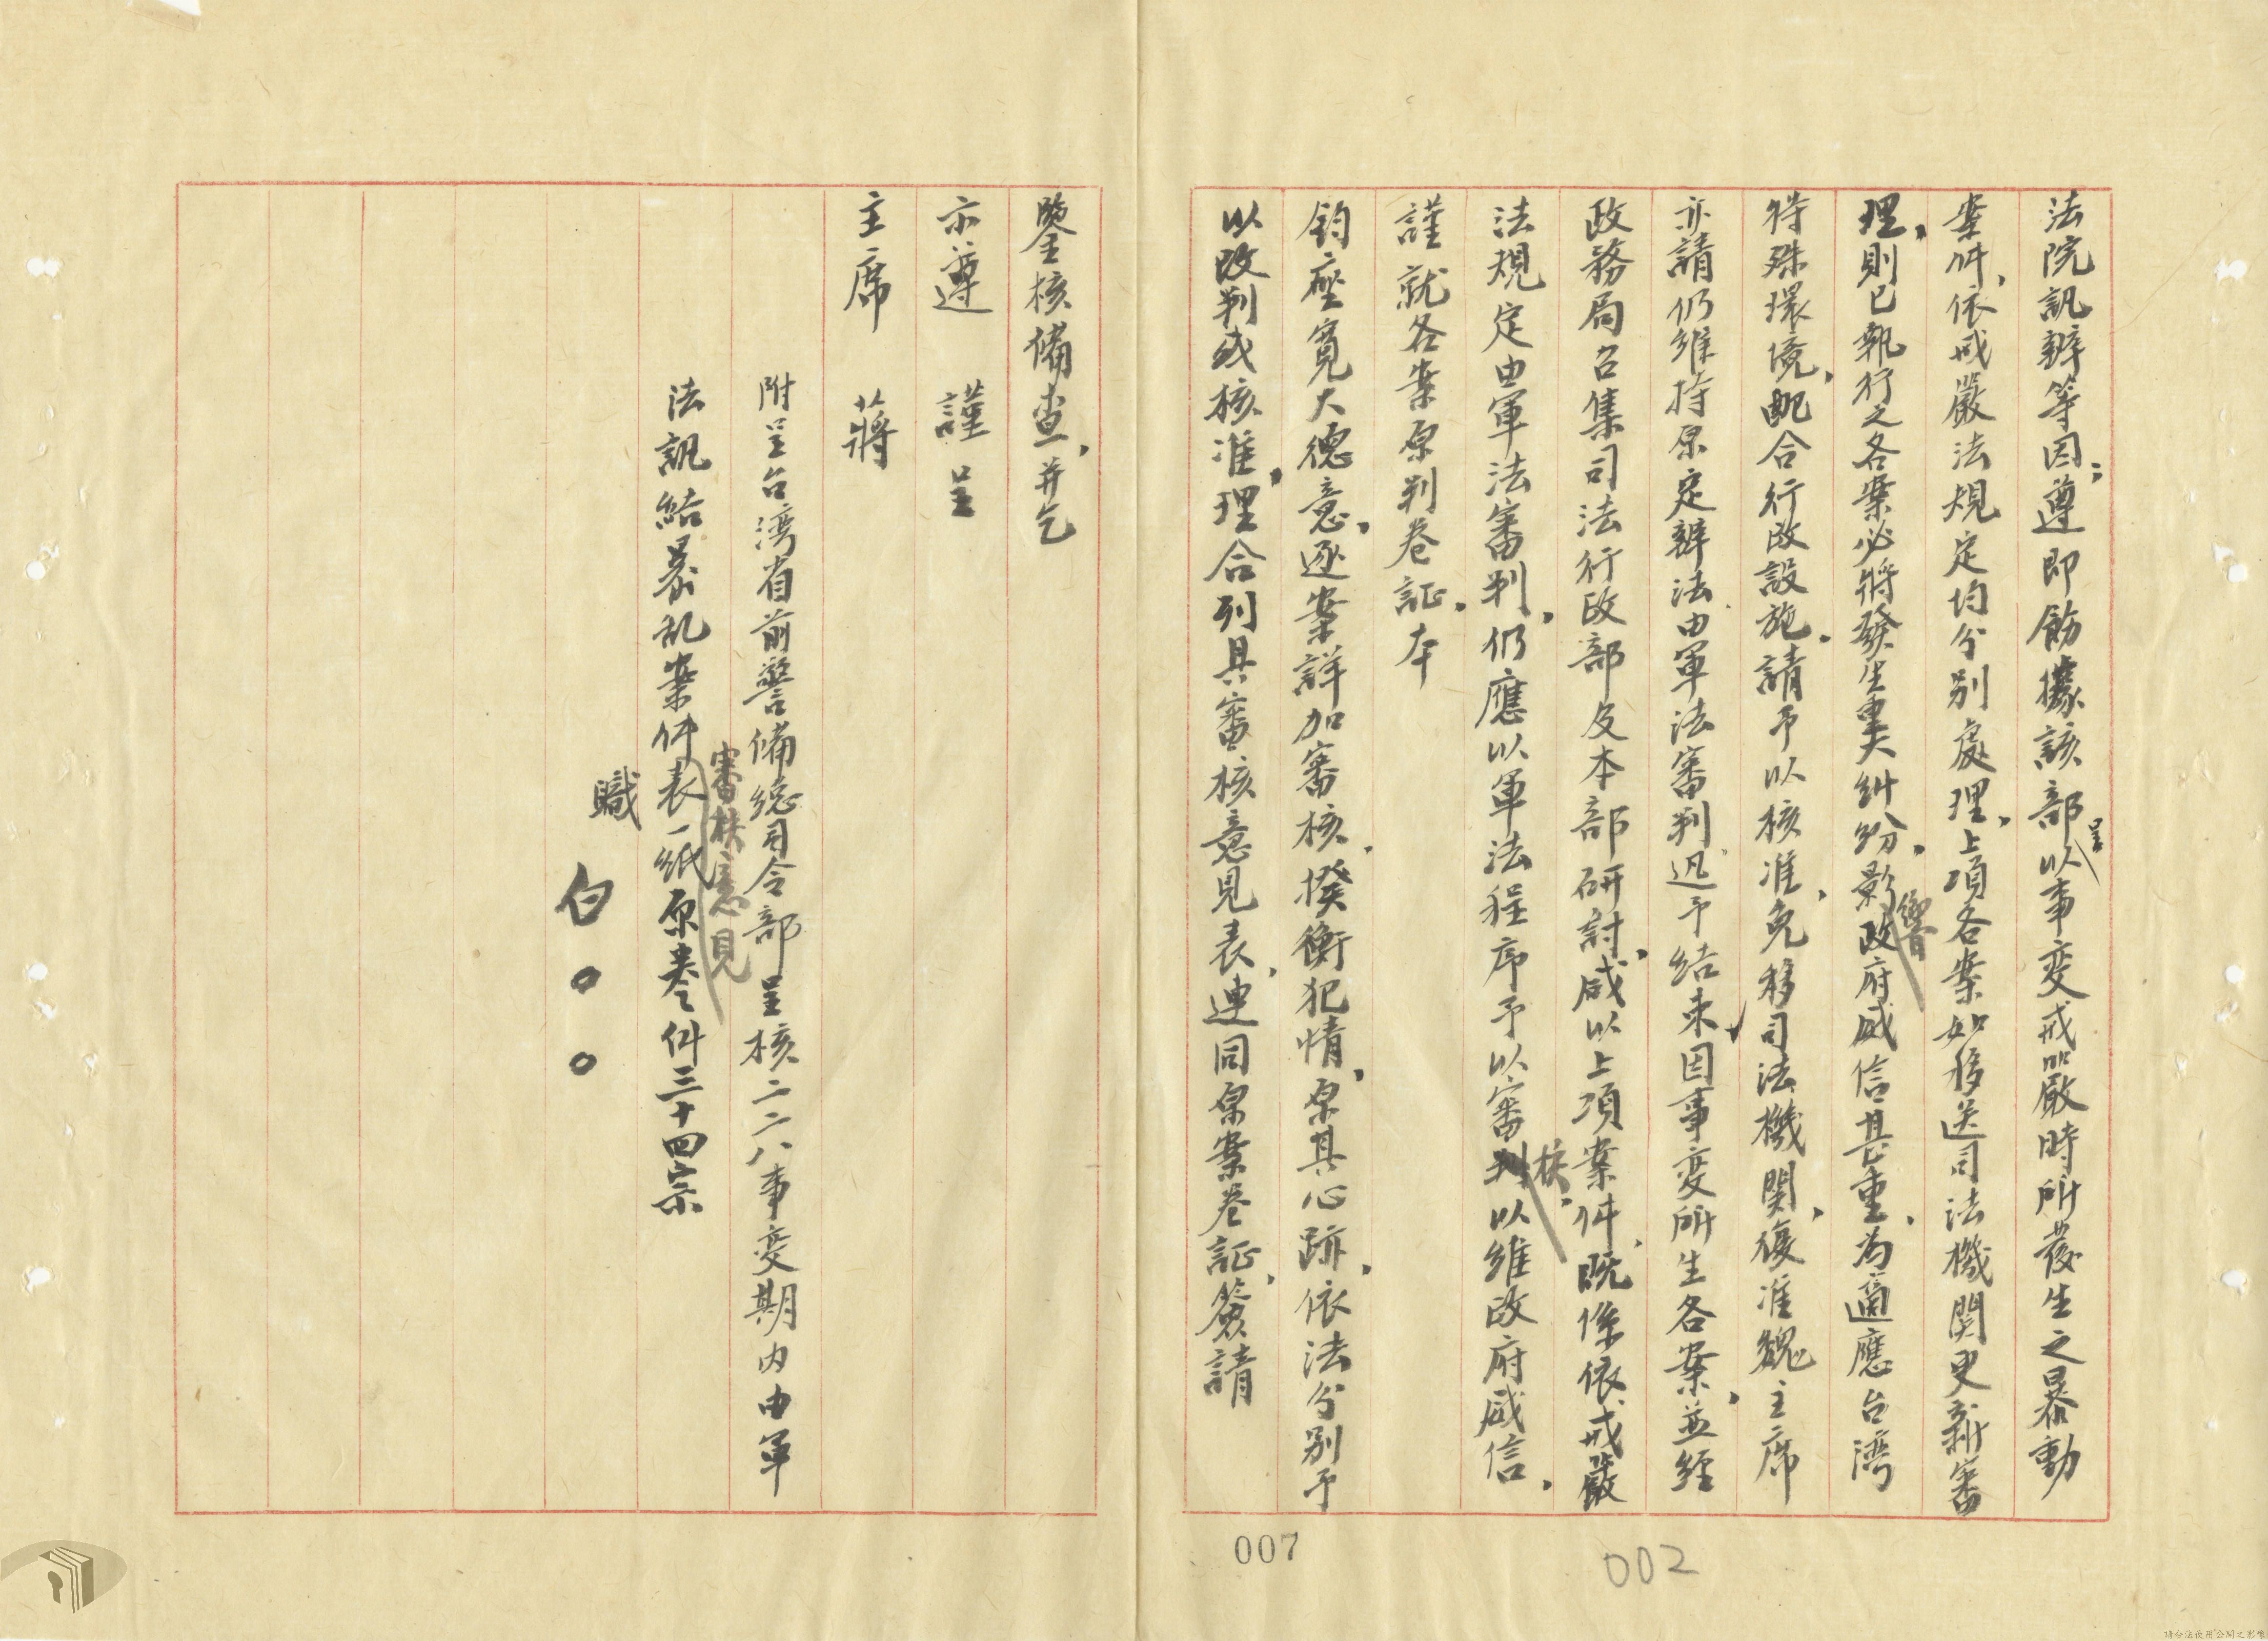 法院訊辦等因；遵即飭據該部呈以事变戒嚴時所發生之暴動
案件，依戒嚴法規定均分別處理，上項各案如移送司法機関更新審
理，則已執行之各案必將發生重大糾紛，影響政府威信甚重，為適應台湾
特殊環境，配合行政設施，請予以核准，免移司法機関，復准魏主席
亦請仍維持原定辦法，由軍法審判迅予結束因事变所生各案，並經
政務局召集司法行政部及本部研討，咸以上項案件，既係依戒嚴
法規定由軍法審判，仍應以軍法程序予以審核，以維政府威信，
謹就各案原判卷証，本
鈞座寬大德意，逐案詳加審核，揆衡犯情，原其心跡，依法分別予
以改判或核准，理合列具審核意見表，連同原案卷証，簽請
鑒核備查，并乞
示遵　謹呈
主席　蔣
附呈台湾省前警備總司令部呈核二二八事变期內由軍
法訊結暴乱案件審核意見表一紙原卷件三十四宗
職　白○○
007
002
請合法使用公開之影像